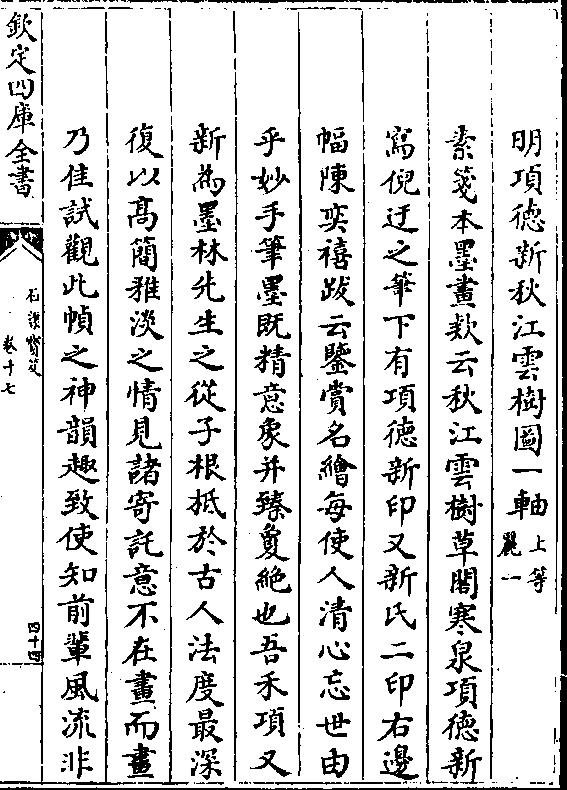 明項德新秋江雲樹圖一軸上等麗一
素箋本墨畫款云秋江雲樹草閣寒泉項德新
寫倪迂之筆下有項德新印又新氏二印右邊
幅陳奕禧跋云鑒賞名繪每使人清心忘世由
乎妙手筆墨既精意象并臻敻絶也吾禾項又
新為墨林先生之從子根柢於古人法度最深
復以髙簡雅淡之情見諸寄託意不在畫而畫
乃佳試觀此幀之神韻趣致使知前輩風流非
欽定四庫全書
石渠寳笈
卷十七
四十四